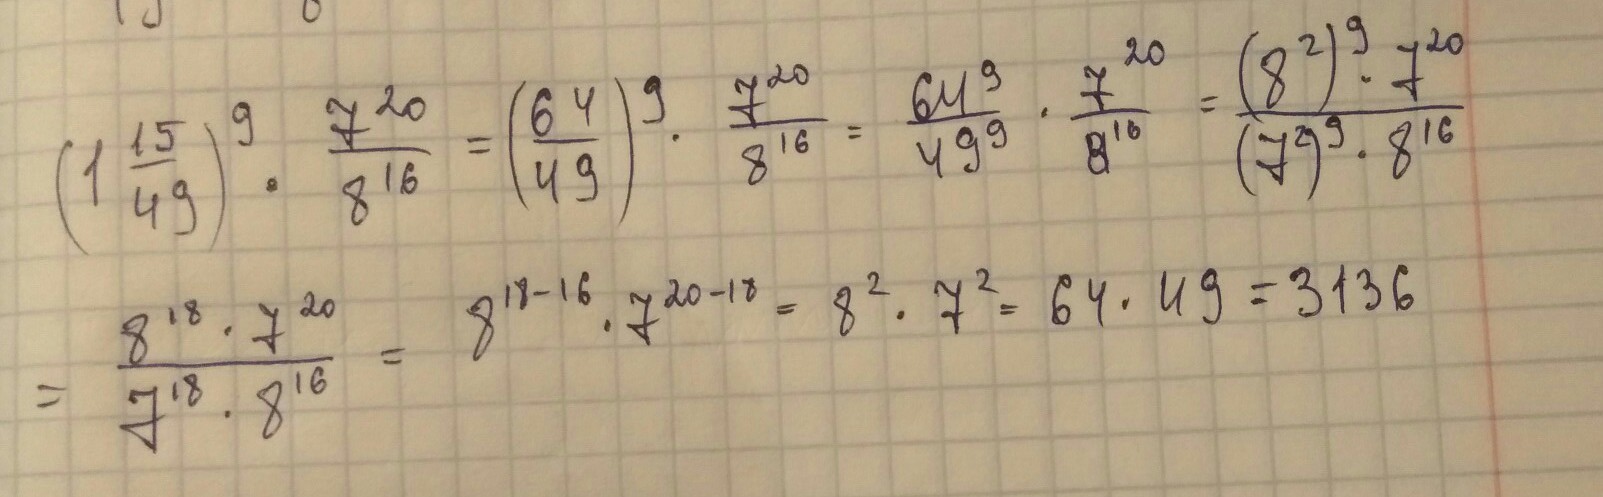 (1 15/49)^9 · 7^20/8^16 = (64/49)^9 · 7^20/8^16 = 64^9/49^9 · 7^20/8^16 = (8^2)^9 · 7^20/(7^2)^9 · 8^16
= 8^18 · 7^20/7^18 · 8^16 = 8^18-16 · 7^20-18 = 8^2 · 7^2 = 64 · 49 = 3136